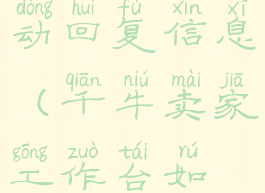 dòng huí fù xìn xī
动回复信息
qiān niú mài jiā
（千牛卖家
gōng zuò tái rú
工作台如